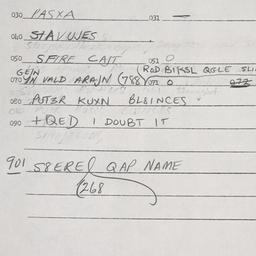 030 PASXA 031 —
040 STAVUNES
050 SFIRE CAIT 051 0
GEIN (ROD BIKSL QGLE SLI
070 YN VALD ARAJN (788) 071 0 072
080 PUTER KUXN BLSINCES
090 +QED I DOUBT IT
901 S8EREL QAP NAME
(268